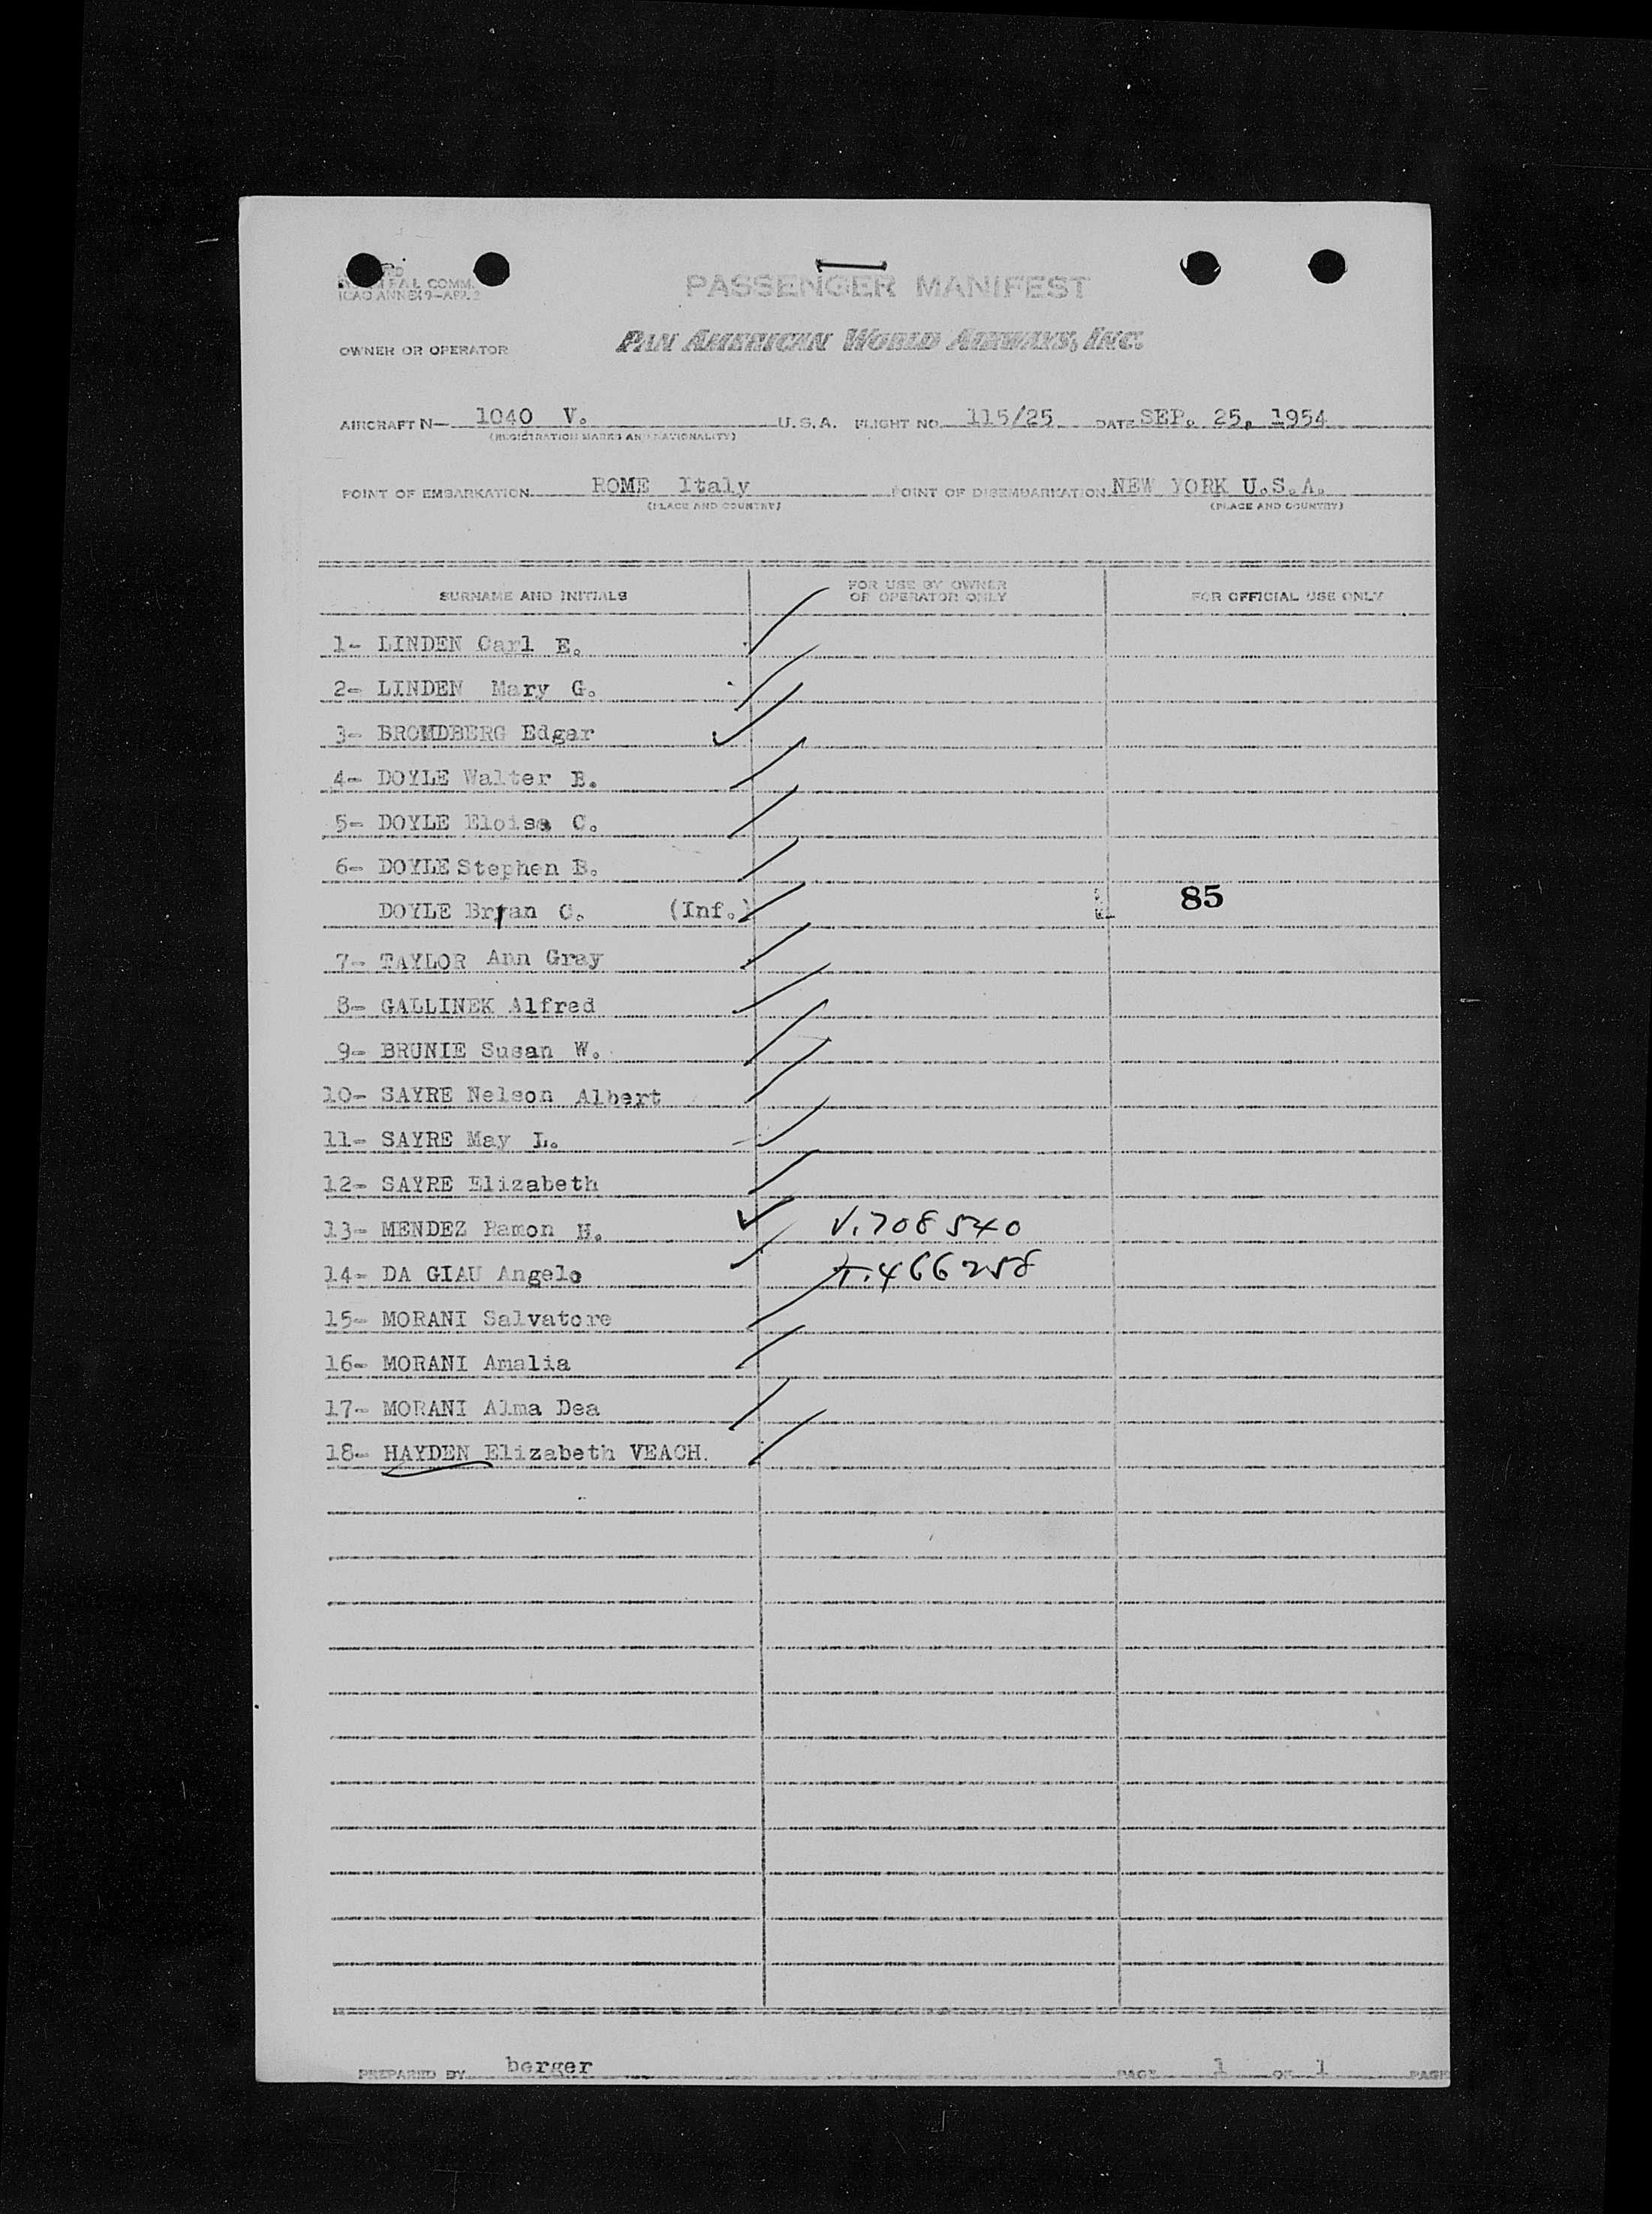 F.A.L. COMM.
ICAO ANNEX 9-APP. 3
PASSENGER MANIFEST
OWNER OR OPERATOR
PAN AMERICAN WORLD AIRWAYS, INC.
AIRCRAFT N- 1040 V. U.S.A. FLIGHT NO. 115/25 DATE SEP. 25, 1954
(REGISTRATION MARKS AND NATIONALITY)
POINT OF EMBARKATION ROME Italy POINT OF DISEMBARKATION NEW YORK U.S.A.
(PLACE AND COUNTRY) (PLACE AND COUNTRY)
SURNAME AND INITIALS FOR USE BY OWNER OR OPERATOR ONLY FOR OFFICIAL USE ONLY
1- LINDEN Carl E.
2- LINDEN Mary G.
3- BROMDBERG Edgar
4- DOYLE Walter E.
5- DOYLE Eloise C.
6- DOYLE Stephen B.
DOYLE Bryan C. (Inf.) 85
7- TAYLOR Ann Gray
8- GALLINEK Alfred
9- BRUNIE Susan W.
10- SAYRE Nelson Albert
11- SAYRE May L.
12- SAYRE Elizabeth
13- MENDEZ Ramon H. V.708540
14- DA GIAU Angelo T.466258
15- MORANI Salvatore
16- MORANI Amalia
17- MORANI Alma Dea
18- HAYDEN Elizabeth VEACH.
PREPARED BY berger PAGE 1 OF 1 PAGE